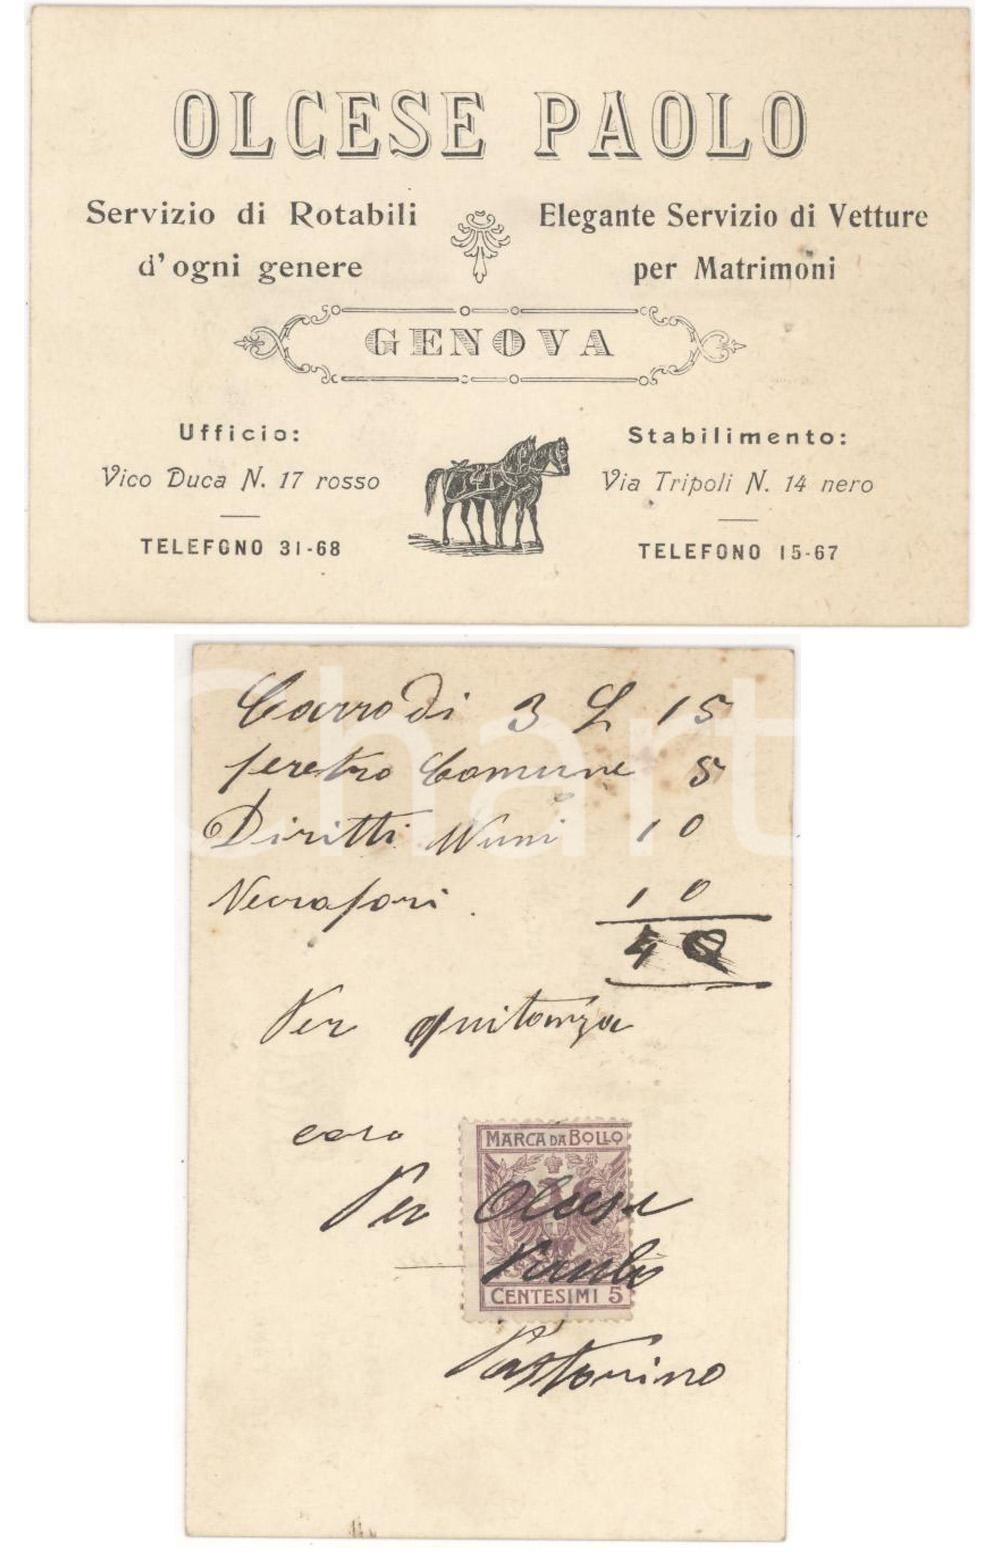 OLCESE PAOLO
Servizio di Rotabili
d'ogni genere
Elegante Servizio di Vetture
per Matrimoni
GENOVA
Ufficio:
Vico Duca N. 17 rosso
TELEFONO 31-68
Stabilimento:
Via Tripoli N. 14 nero
TELEFONO 15-67
Carro di 3 L 15
feretro Comune 5
Diritti Muni 10
Necrofori 10
40
Per quitanza
MARCA DA BOLLO
Per Olcese
Paolo
CENTESIMI 5
Pastorino
Chart